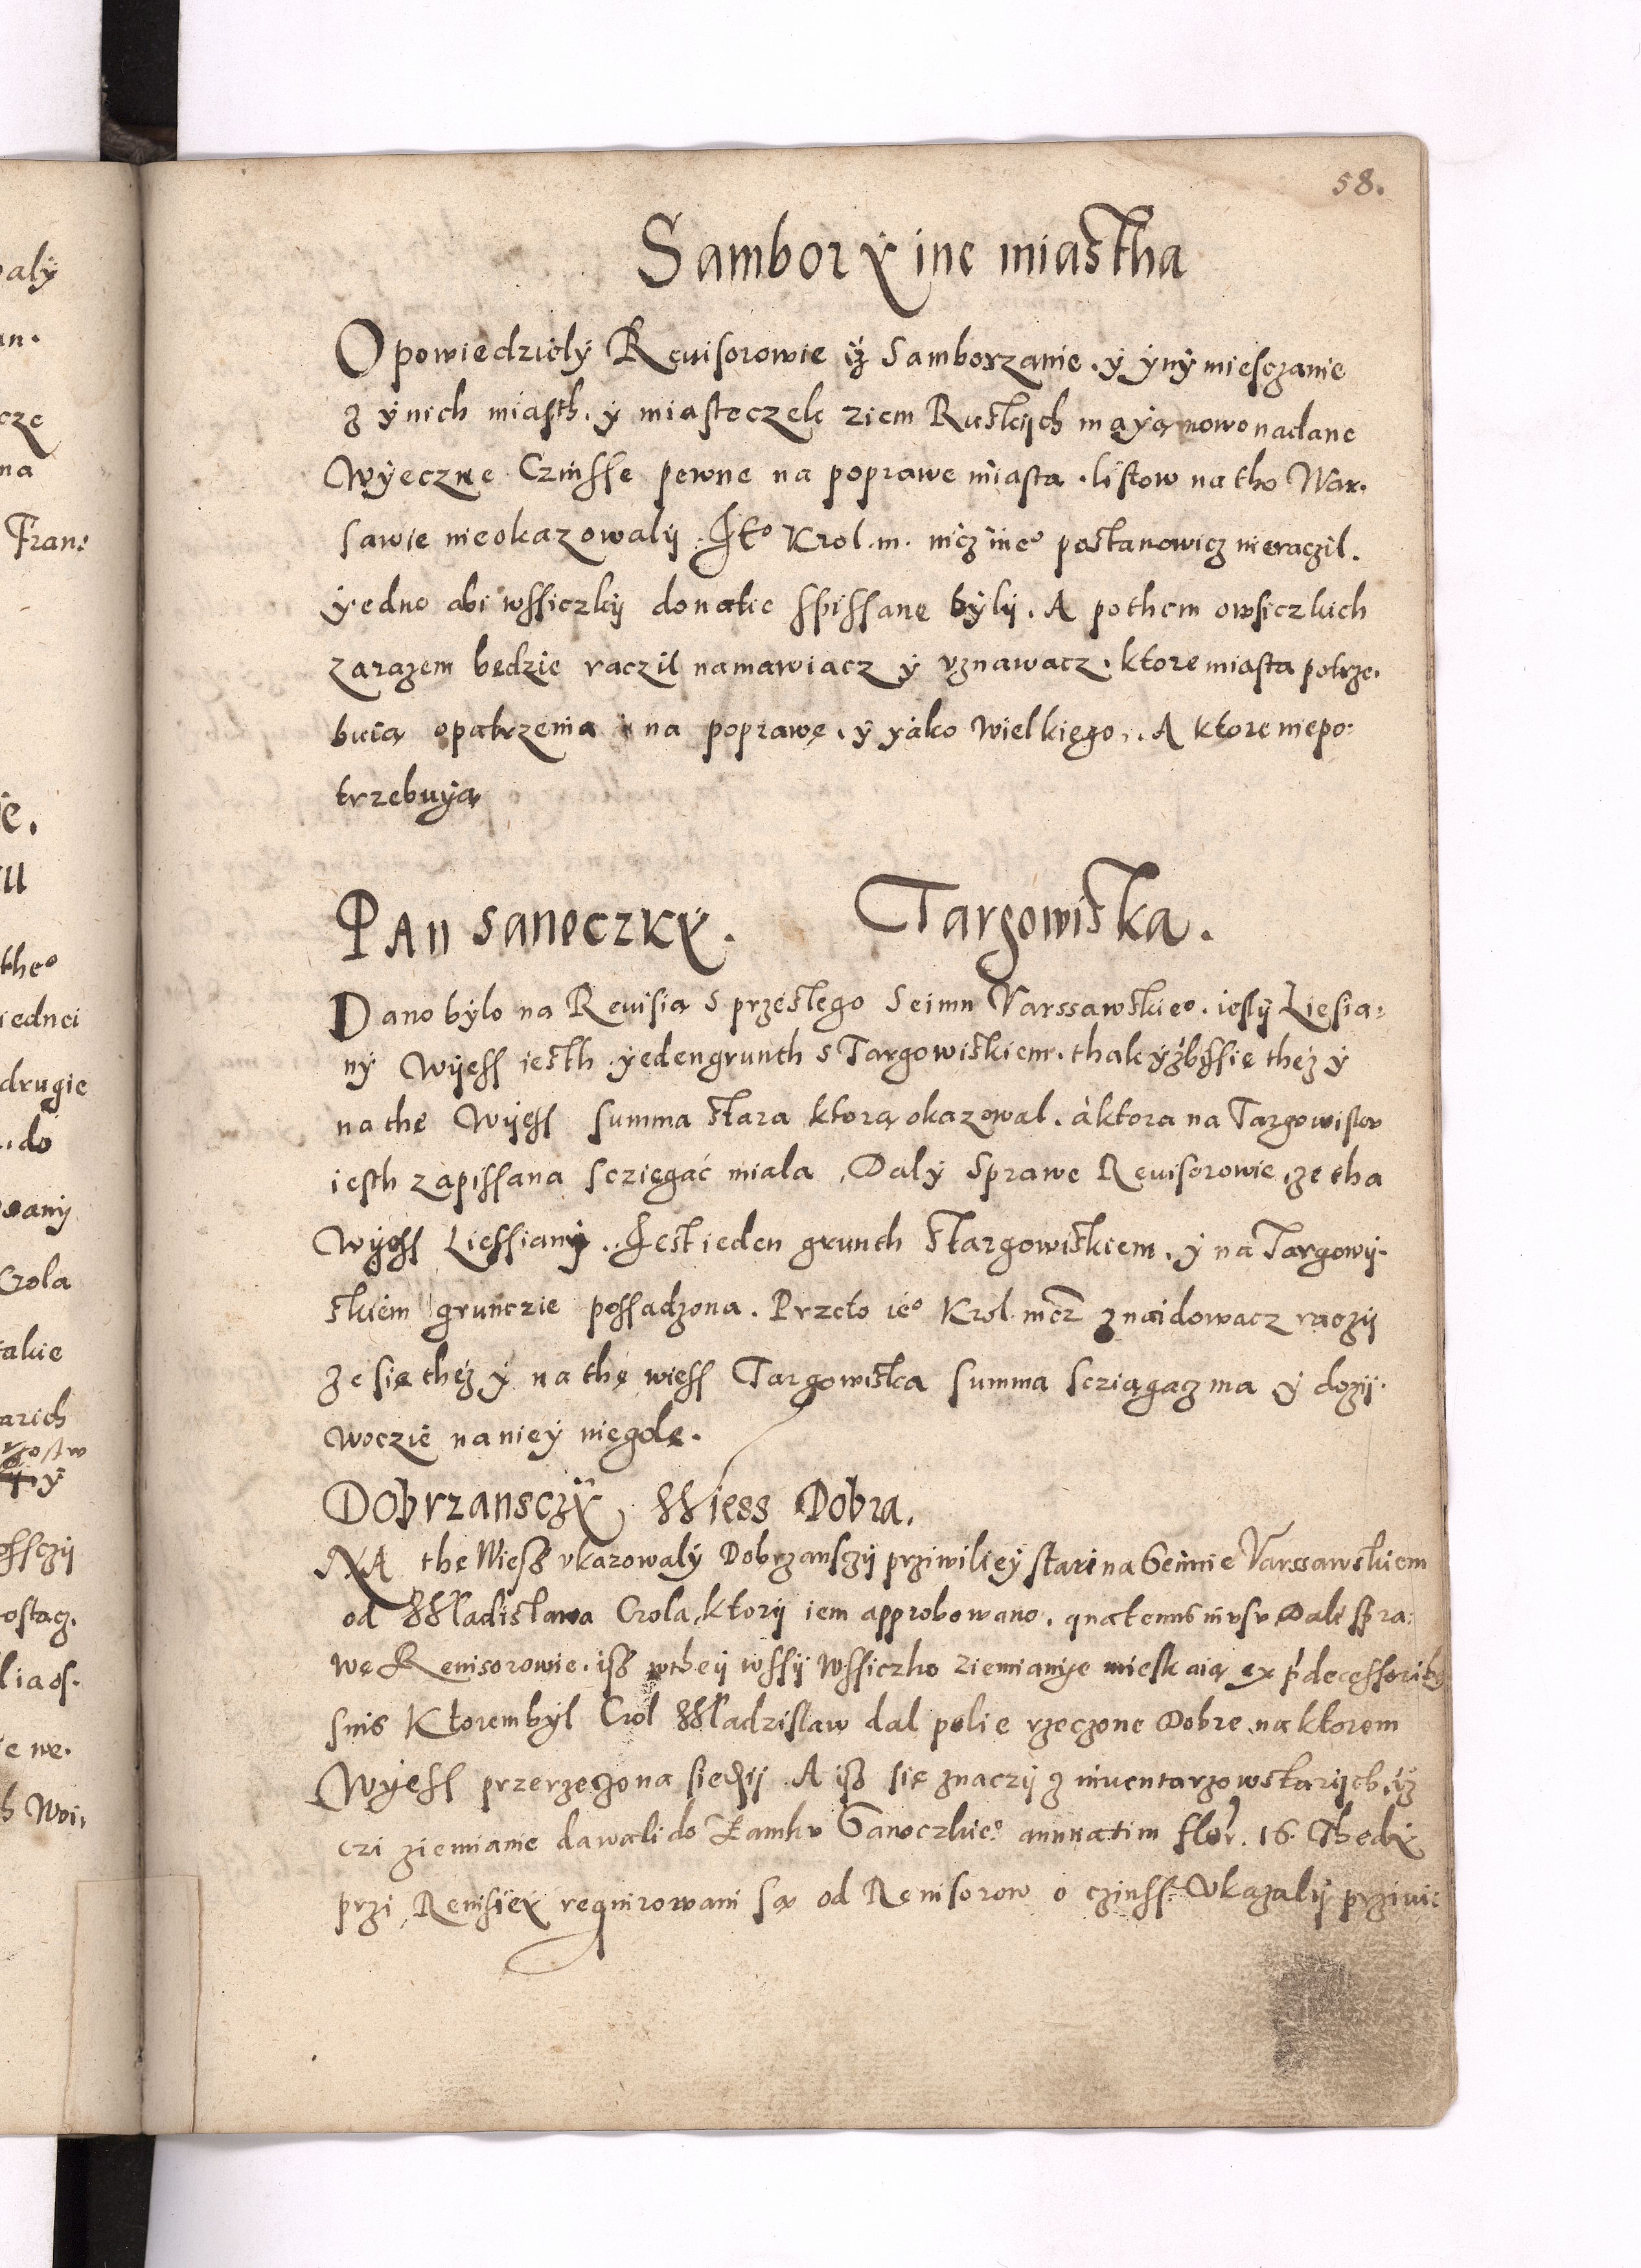 58.
Sambor ÿ ine miastha
Opowiedziely Reuisorowie iż Samborzanie. ÿ ÿnÿ miesczanie
z ÿnich miasth. ÿ miasteczek ziem Ruskijch maÿą nowo nadane
Wÿeczne Czinsse pewne na poprawe miasta. listow na tho War.
sawie nie okazowalij. Jeº Krol. m. nicz ineº postanowicz nieraczil.
ÿedno abi wssiczkij donatie spissane bÿlij. A pothem owsiczkich
zarazem będzie raczil namawiacz ÿ vznawacz. ktore miasta potrze.
buią opatrzenia na poprawę. ÿ ÿako wielkiego. A ktore niepo:
trzebuÿą
Pan Sanoczkÿ. Targowiska.
Dano bÿlo na Reuisią s przeslego Seimu Varssawskieº. ieslÿ Liesia:
nÿ Wÿess iesth ÿeden grunth s Targowiskiem. thak ÿżbÿ sie theż ÿ
na thę Wÿess summa stara ktorą okazowal. à ktora na Targowisku
iesth zapissana scziegać miala. Dalÿ Sprawe Reuisorowie że tha
Wÿess Liessianÿ. Jest ieden grunth s Targowiskiem. ÿ na Targowij.
skiem grunczie possadzona. Przeto ieº Krol. mcz znaidowacz raczij
że się theż ÿ na thę wiess Targowiska summa scziągacz ma ÿ dozij.
woczie na nieÿ niegdę.
Dobrzansczÿ Wiess Dobra.
NA the Wiesz vkazowalÿ Dobrzansczij prziwilieÿ stari na Seimie Varssawskiem
od Wladislawa Crola, ktorij iem approbowano. quatenus in vsu Dali spra:
wę Reuisorowie. isz wtheij wssij wssiczko ziemianÿe mieskaią ex p'decessoribꝫ
suis Ktorem bÿl Crol Wladzislaw dal polie rzeczone Dobre na ktorem
Wÿess przerzeczona siedzij. A isz się znaczij z inuentarzow starijch iż
czi ziemianie dawali do Zamku Sanoczkieº annuatim flor. 16. Thedÿ
przi Reuisieÿ requirowani są od Reuisorow o czinss. Vkazalij przivi: